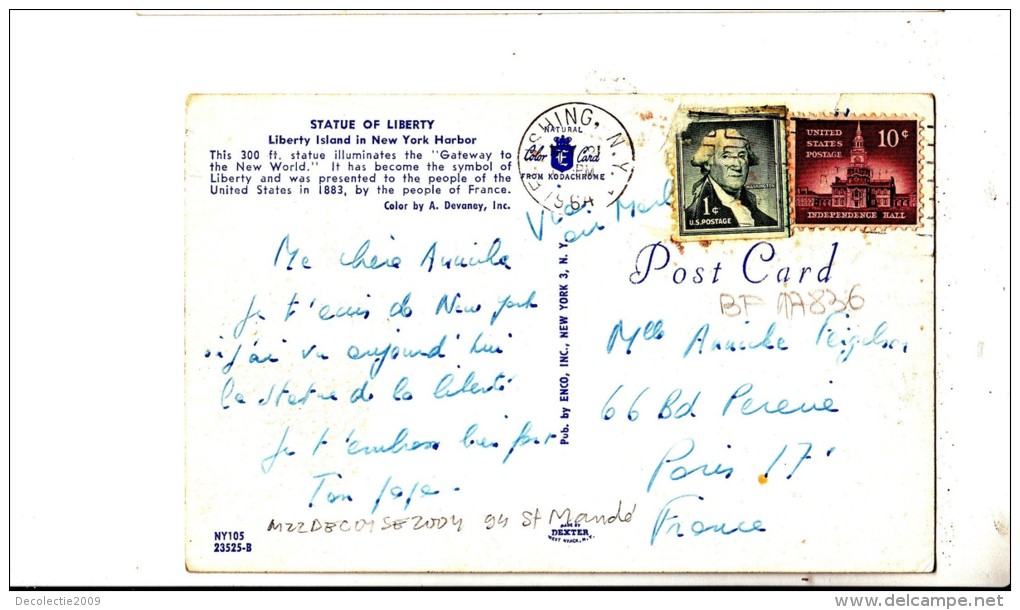 STATUE OF LIBERTY
Liberty Island in New York Harbor
This 300 ft. statue illuminates the "Gateway to
the New World." It has become the symbol of
Liberty and was presented to the people of the
United States in 1883, by the people of France.
Color by A. Devaney, Inc.
Ma chère Annicke
Je t'écris de New York
où j'ai vu aujourd'hui
la statue de la liberté
Je t'embrasse bien fort
Ton papa.
M22DEC01SE2004 94 St Mandé
NY105
23525-B
SHING, N.Y.
PM
NATURAL
Color Card
FROM KODACHROME
Via
Pub. by ENCO, INC., NEW YORK 3, N. Y.
MADE BY
DEXTER
WEST NYACK, N.Y.
WASHINGTON
1¢
U.S. POSTAGE
UNITED
STATES
POSTAGE
10¢
INDEPENDENCE HALL
Post Card
BF 17836
Mlle Annicke
66 Bd Pereire
Paris 17
France
Decolectie2009
www.delcampe.net